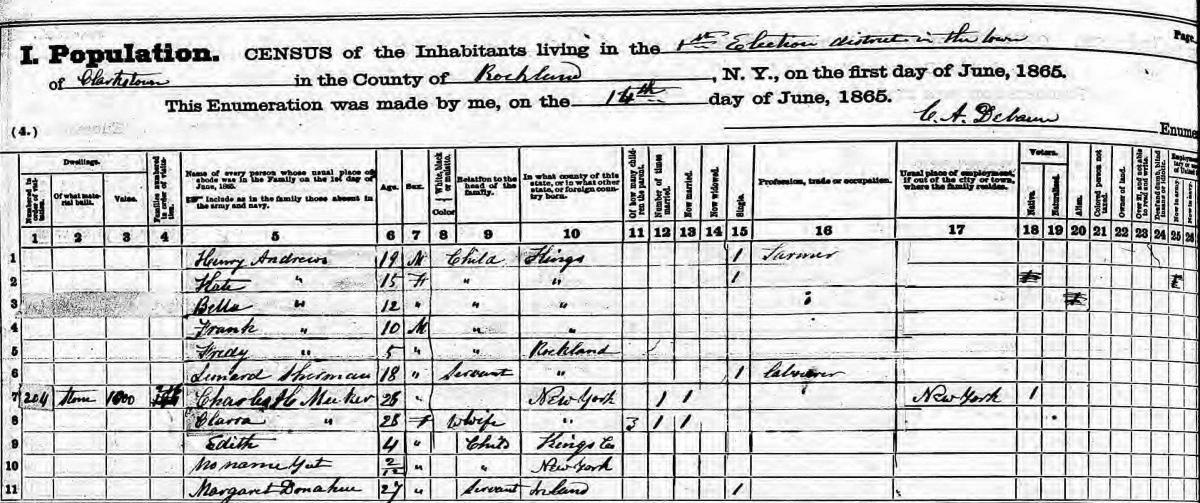 I. Population. CENSUS of the Inhabitants living in the 1st Election district in the town Page,
of Clarkstown in the County of Rockland, N. Y., on the first day of June, 1865.
This Enumeration was made by me, on the 14th day of June, 1865.
(4.) Enume
Numbered in order of visitation. Dwellings. Of what material built. Value. Families numbered in order of visitation. Name of every person whose usual place of abode was in the Family on the 1st day of June, 1865. Include as in the family those absent in the army and navy. Age. Sex. White, black or mulatto. Color Relation to the head of the family. In what county of this state, or in what other state, or foreign country born. Of how many children the parent. Number of times married. Now married. Now widowed. Single. Profession, trade or occupation. Usual place of employment, if out of the city or town, where the family resides. Voters. Native. Naturalized. Alien. Colored person not taxed. Owner of land.
1 2 3 4 5 6 7 8 9 10 11 12 13 14 15 16 17 18 19 20 21 22 23 24 25 26
1 Henry Andrews 19 M Child Kings 1 Farmer
2 Kate " 15 F " " 1
3 Bella " 12 " " "
4 Frank " 10 M " "
5 Fredy " 5 " " Rockland
6 Lenard Sherman 18 " Servant " 1 Labourer
7 204 Stone 1000 Charles H Meeker 28 " New York 1 1 New York 1
8 Clarra " 28 F Wife " 3 1 1
9 Edith 4 " Child Kings Co
10 No name Yet 2/12 " " New York
11 Margaret Donahue 27 " Servant Ireland 1